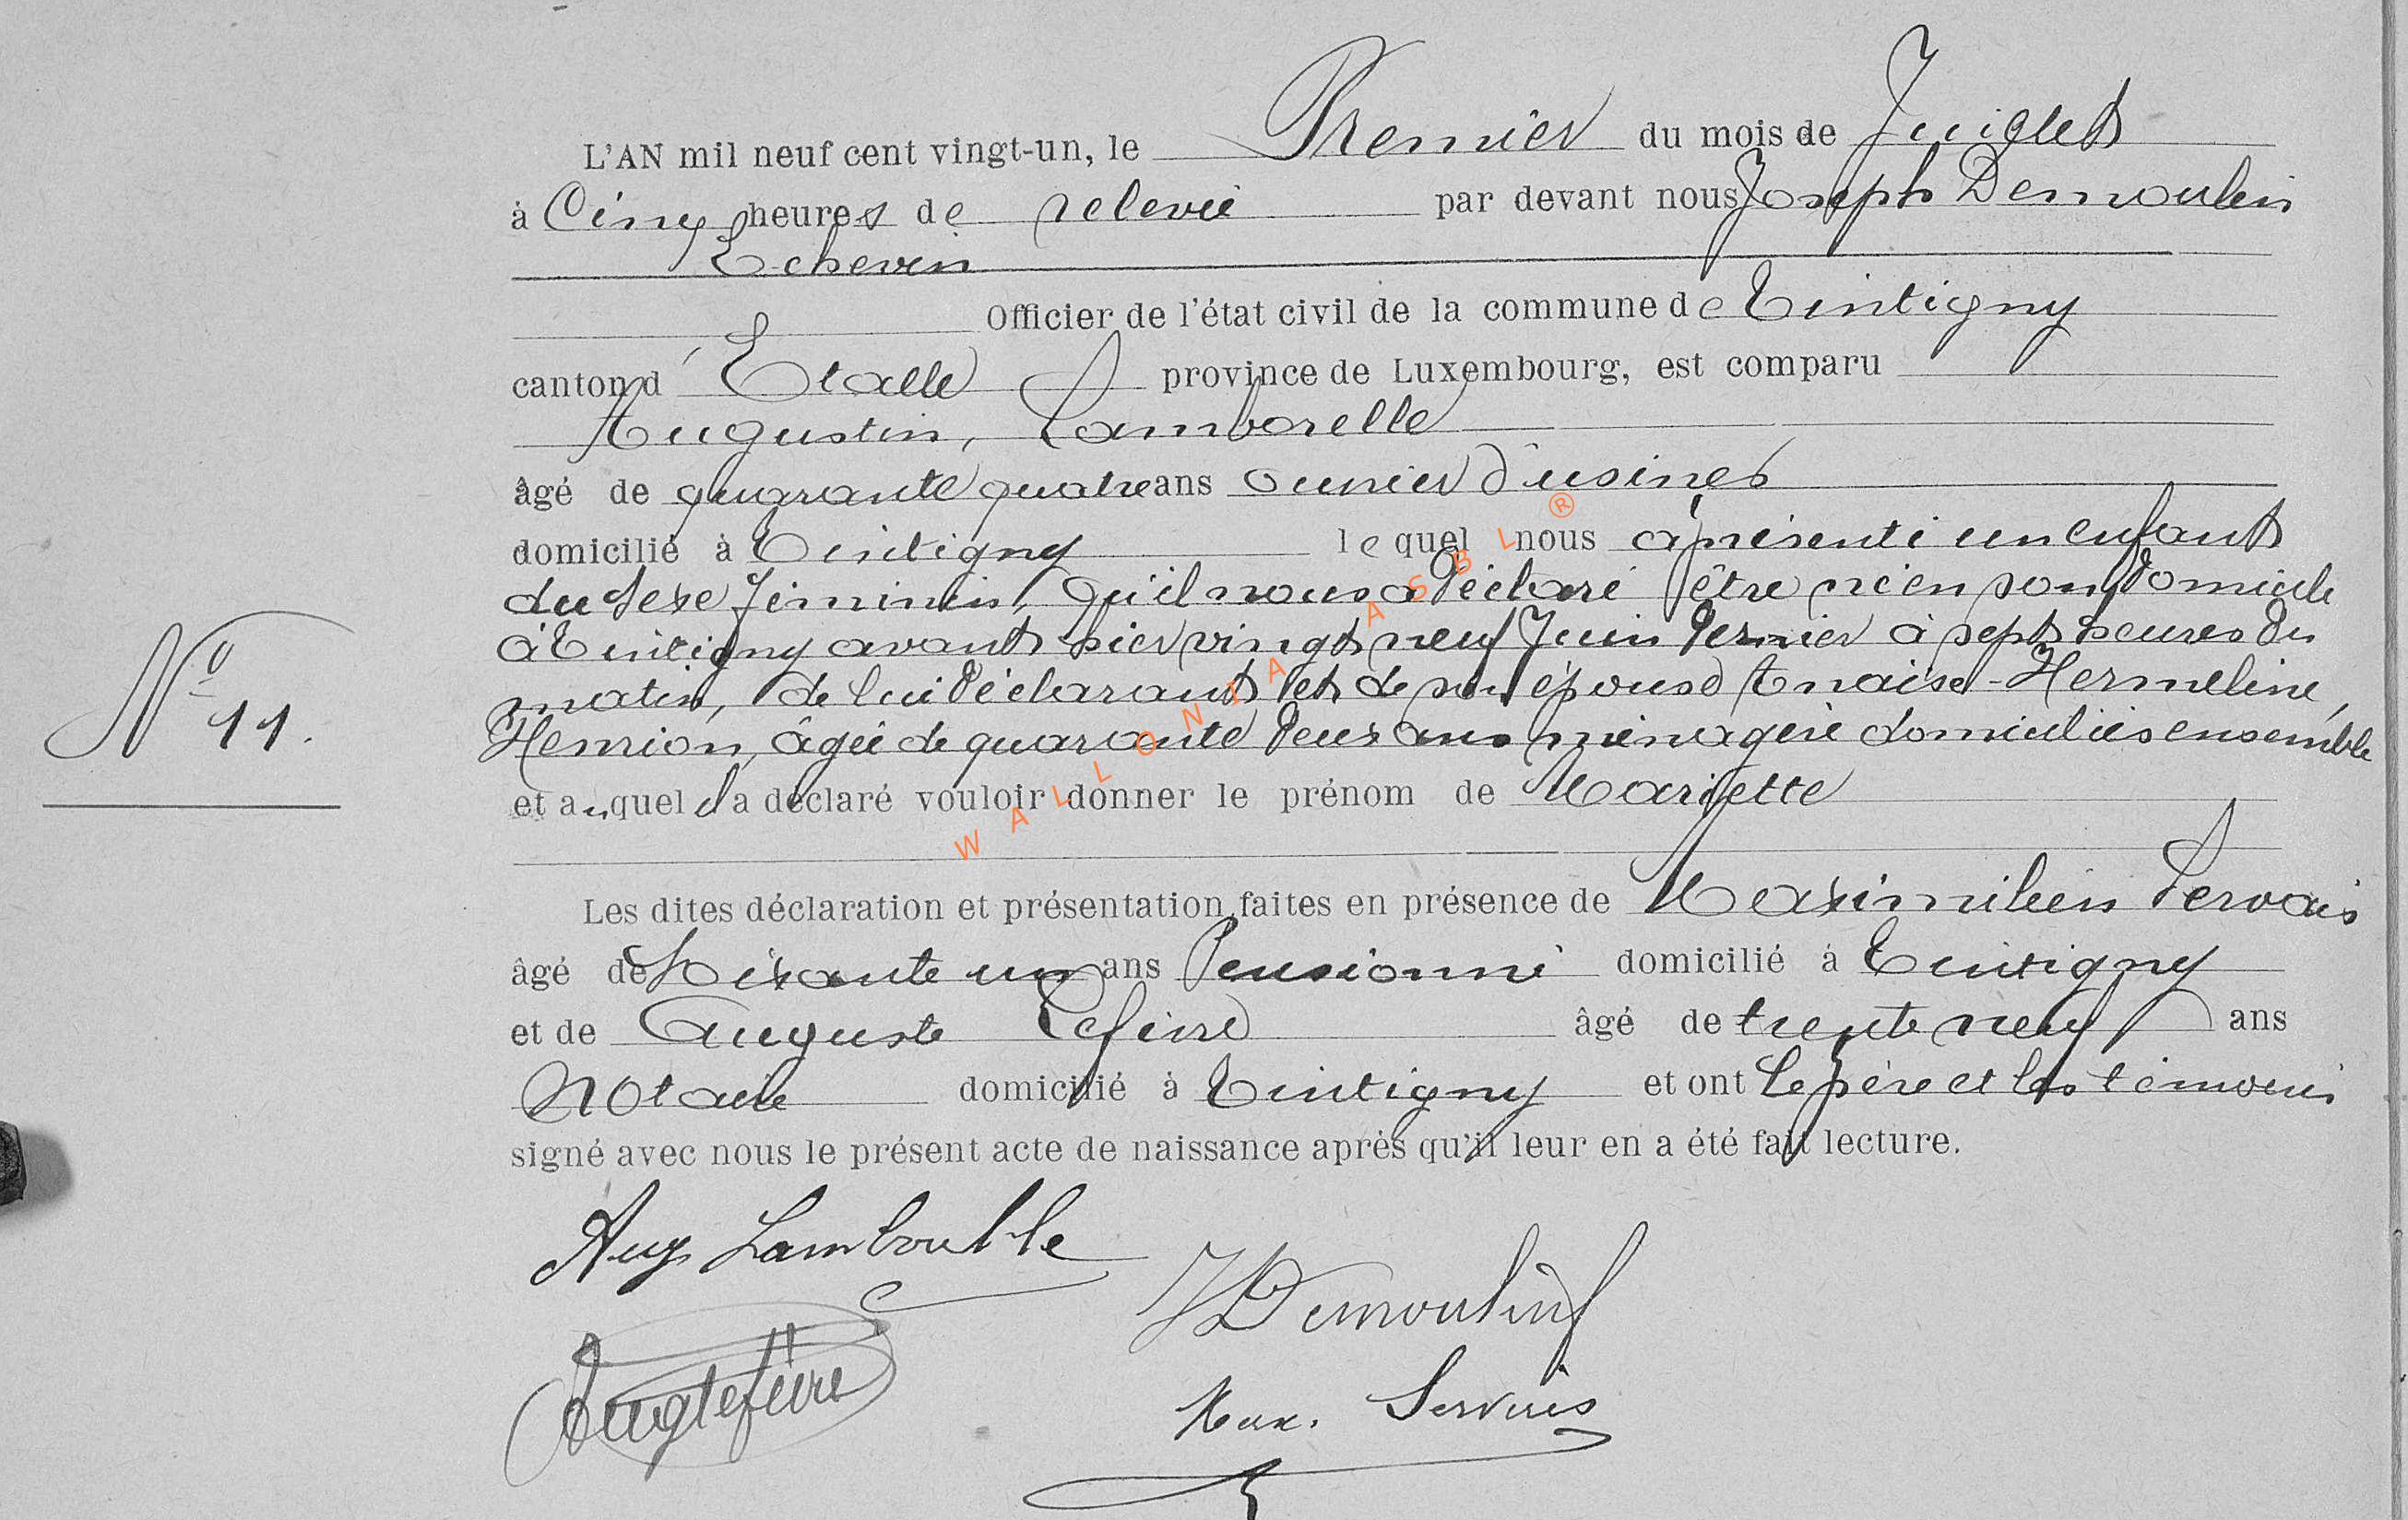 L'AN mil neuf cent vingt-un, le Premier du mois de Juillet
à Cinq heures de relevée par devant nous Joseph Demoulin
Echevin
Officier de l'état civil de la commune de Tintigny
canton d'Etalle province de Luxembourg, est comparu
Augustin, Lamborelle
âgé de quarante quatre ans ouvrier d'usines
domicilié à Tintigny lequel nous a présenté un enfant
du sexe féminin, qu'il nous a déclaré être né en son domicile
à Tintigny avant hier vingt neuf Juin dernier à sept heures du
matin, de lui déclarant et de son épouse Anaïse-Hermeline,
N° 11.
Henrion, âgée de quarante deux ans ménagère domiciliés ensemble
et auquel il a déclaré vouloir donner le prénom de Mariette
Les dites déclaration et présentation faites en présence de Maximilien Servais
âgé de soixante un ans Pensionné domicilié à Tintigny
et de Auguste Lefèvre âgé de trente neuf ans
Notaire domicilié à Tintigny et ont le père et les témoins
signé avec nous le présent acte de naissance après qu'il leur en a été fait lecture.
Aug Lamborelle
J Demoulin
Aug Lefèvre
Max. Servais
WALLONIA ASBL ®